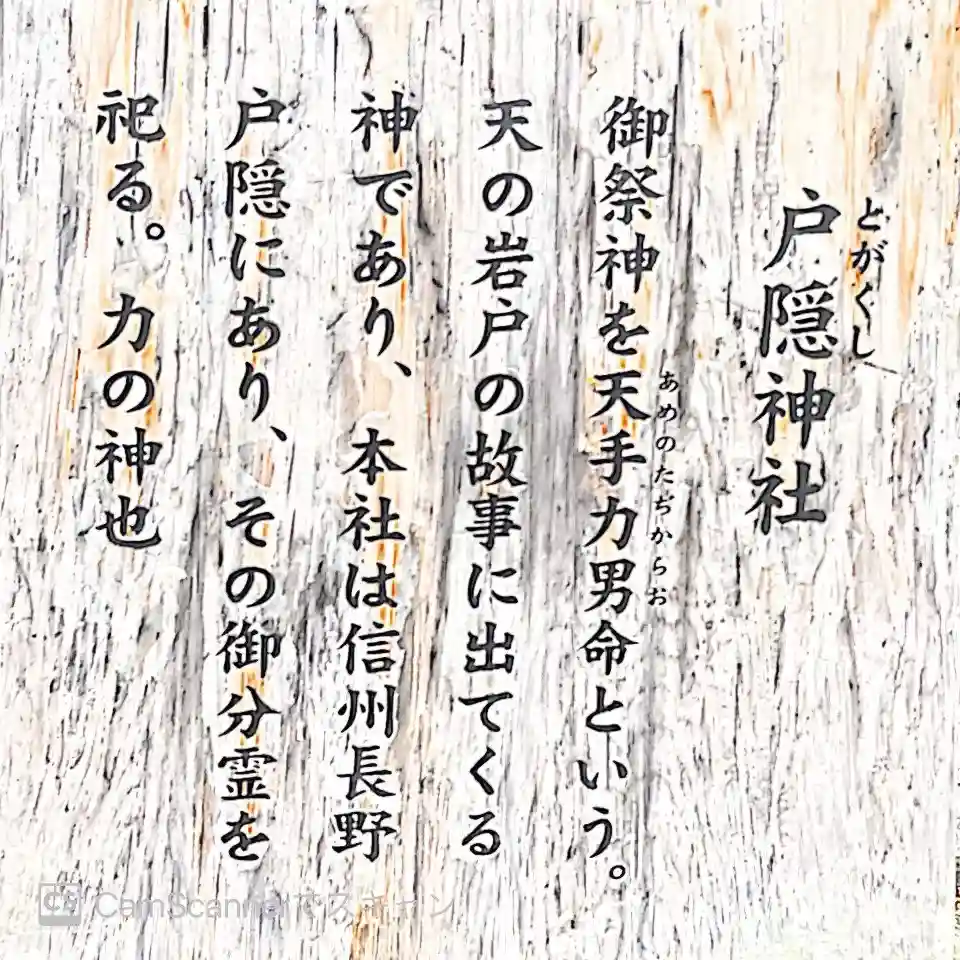 戸隠神社
とがくし
御祭神を天手力男命という。
あめのたぢからお
天の岩戸の故事に出てくる
神であり、本社は信州長野
戸隠にあり、その御分霊を
祀る。力の神也
CS CamScannerでスキャン